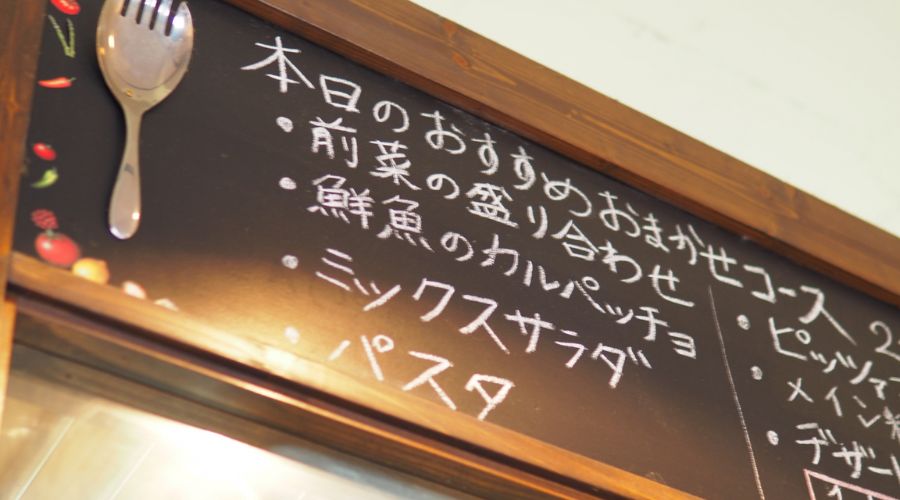 本日のおすすめおまかせコース 2
・前菜の盛り合わせ
・鮮魚のカルパッチョ
・ミックスサラダ
・パスタ
・ピッツァ
・メイン料
・デザー